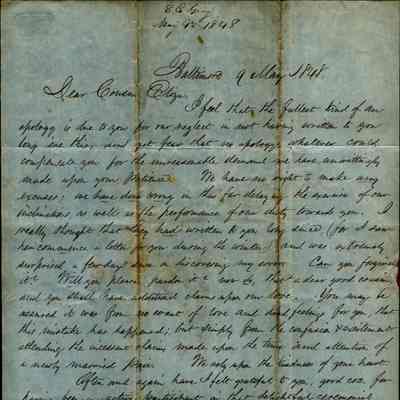 May 9th 1848
Baltimore 9 May 1848.
Dear Cousin Eliza
I feel that the fullest kind of an
apology is due to you for our neglect in not having written to you
long ere this, and yet fear that no apology whatever could
compensate you for the unreasonable demand we have unwittingly
made upon your patience. We have no right to make any
excuses; we have done wrong in thus far delaying the exercise of our
inclinations as well as the performance of our duty towards you. I
really thought that had written to you long since (for I saw
her commence a letter to you during the winter) and was extremely
surprised a few days since in discovering my error. Can you forgive
it? Will you please pardon it & now be, that a dear good cousin,
and you shall have additional claims upon our love. You may be
assured it was from no want of love and kind feelings for you, that
this mistake has happened; but simply from the confusion & excitement
attending the incessant claims made upon the time and attention of
a newly married pair. We rely upon the kindness of your heart.
Often and again have I felt grateful to you, good coz. for
having been active participant in that delightful ceremonial